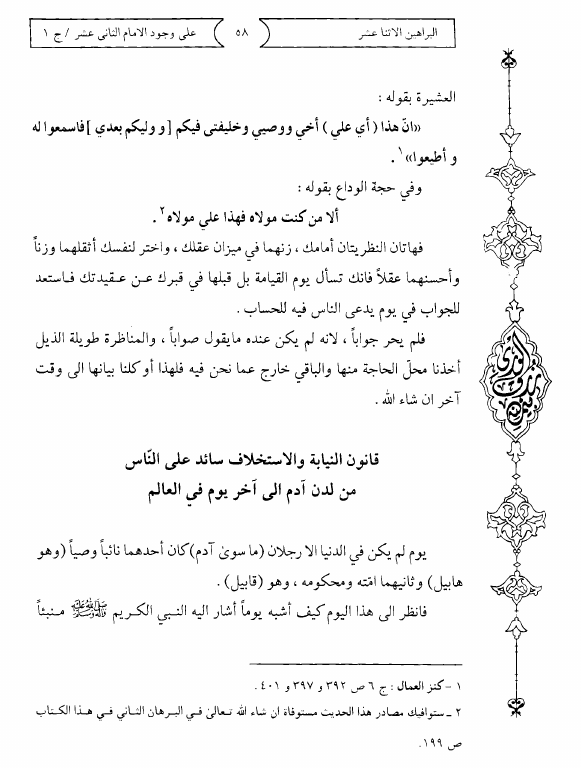 البراهين الاثنا عشر
٥٨
على وجود الامام الثانى عشر / ج ١
العشيرة بقوله :
«انّ هذا ( أي علي ) أخي ووصيي وخليفتى فيكم [ و وليكم بعدي ] فاسمعوا له
و أطيعوا»١ .
وفي حجة الوداع بقوله :
ألا من كنت مولاه فهذا علي مولاه٢ .
فهاتان النظريتان أمامك ، زنهما في ميزان عقلك ، واختر لنفسك أثقلهما وزناً
وأحسنهما عقلاً فانك تسأل يوم القيامة بل قبلها في قبرك عـن عـقيدتك فـاستعد
للجواب في يوم يدعى الناس فيه للحساب .
فلم يحر جواباً ، لانه لم يكن عنده مايقول صواباً ، والمناظرة طويلة الذيل
أخذنا محلّ الحاجة منها والباقي خارج عما نحن فيه فلهذا أوكلنا بيانها الى وقت
آخر ان شاء الله .
قانون النيابة والاستخلاف سائد على النّاس
من لدن آدم الى آخر يوم في العالم
يوم لم يكن في الدنيا الا رجلان (ما سوىٰ آدم)كان أحدهما نائباً وصياً (وهو
هابيل) وثانيهما امّته ومحكومه ، وهو (قابيل) .
فانظر الى هذا اليوم كيف أشبه يوماً أشار اليه النـبي الكـريم ﷺ مـنبئاً
١ – كنز العمال : ج ٦ ص ٣٩٢ و ٣٩٧ و ٤٠١ .
٢ ـ ستوافيك مصادر هذا الحديث مستوفاة ان شاء الله تـعالىٰ فـي البـرهان الثـاني فـي هـذا الكـتاب
ص ١٩٩.